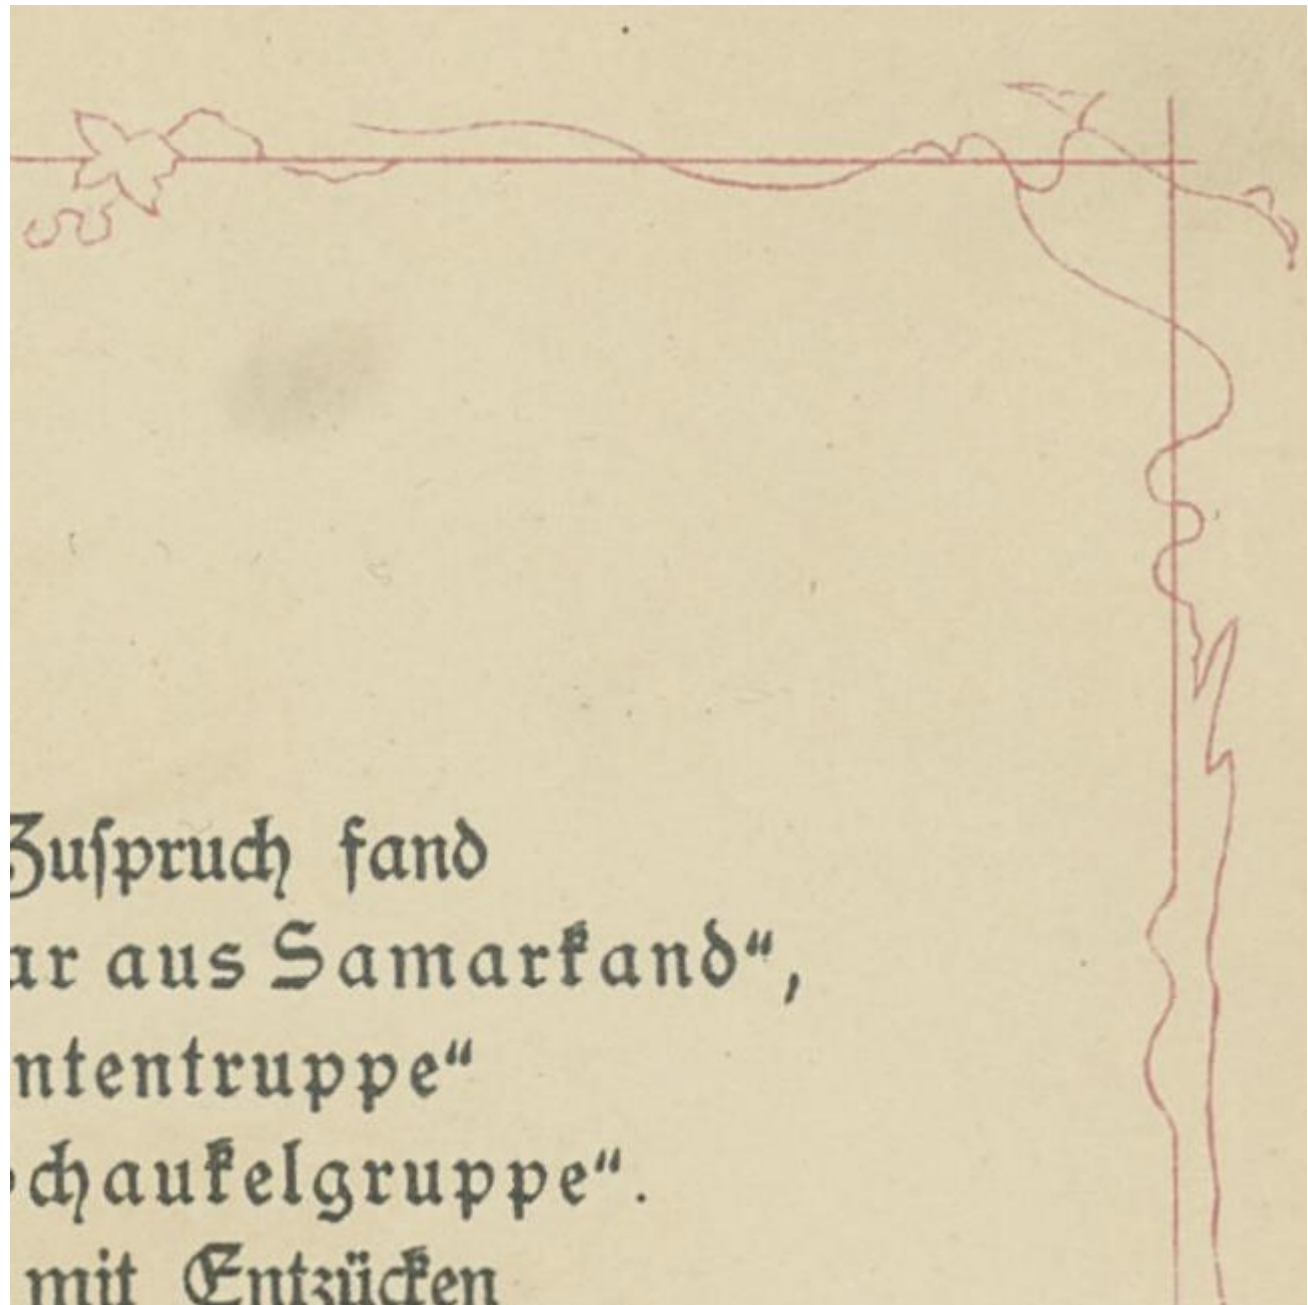 Zuſpruch fand
ar aus Samarkand“,
ntentruppe“
chaukelgruppe“.
mit Entzücken